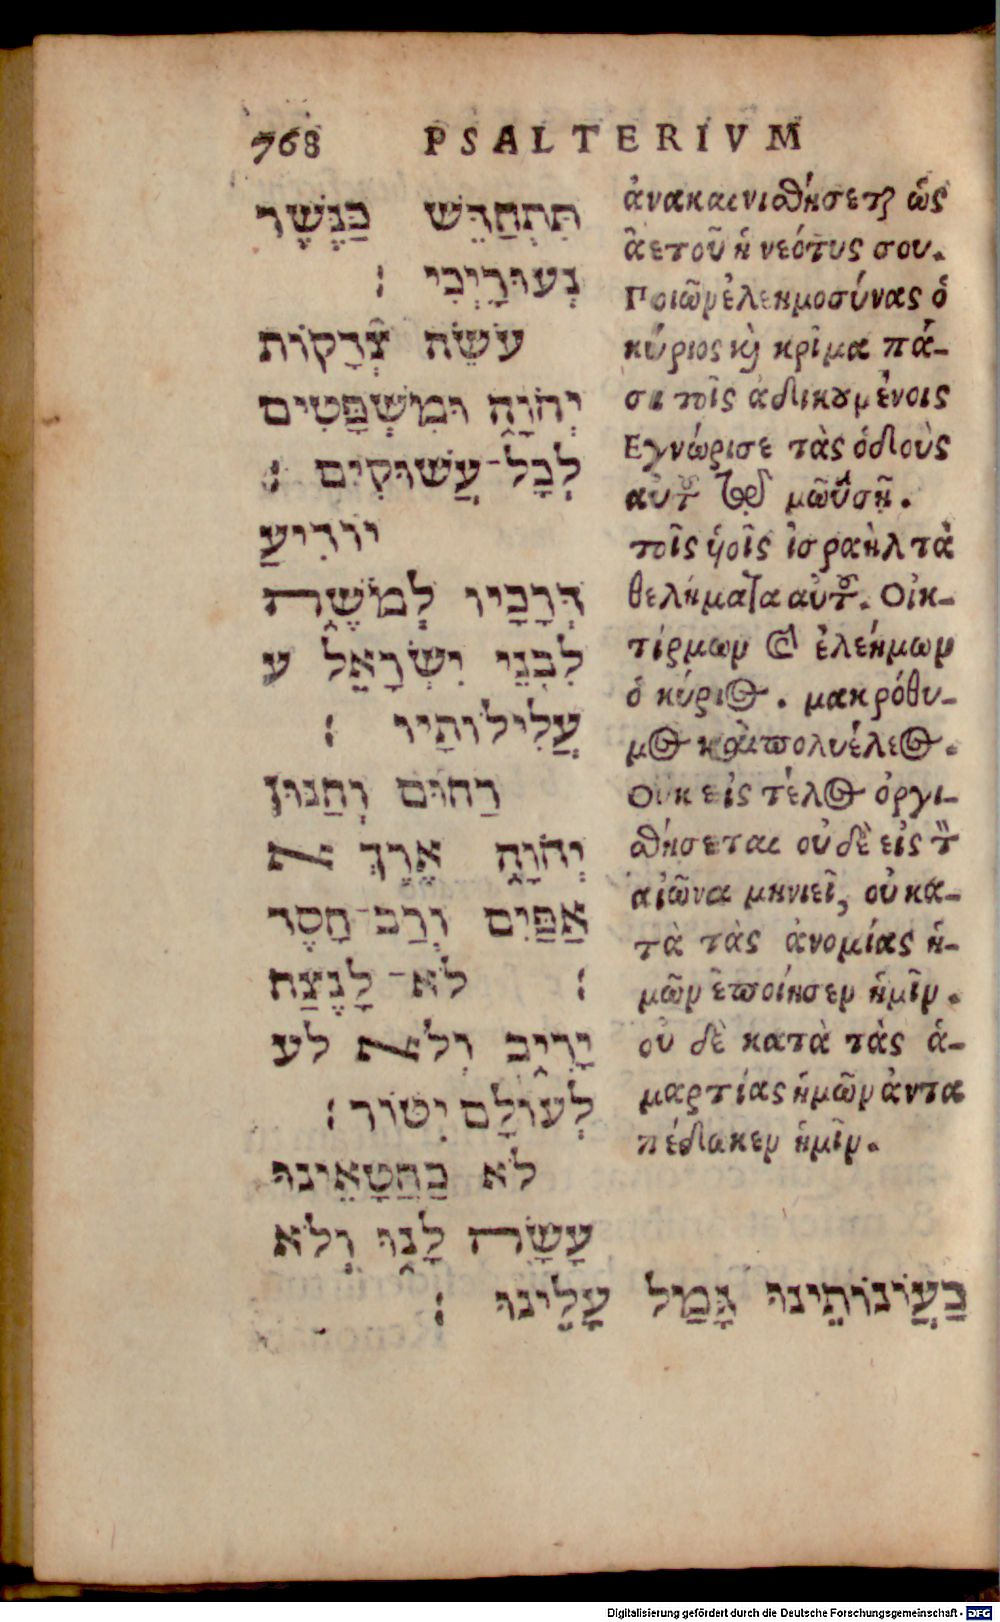 768 PSALTERIVM
תִּתְחַדֵּשׁ כַּנֶּשֶׁר
נְעוּרָיְכִי :
עֹשֵׂה צְדָקוֹת
יְהֹוָה וּמִשְׁפָּטִים
לְכָל־עֲשׁוּקִים :
יוֹדִיעַ
דְּרָכָיו לְמֹשֶׁה
לִבְנֵי יִשְׂרָאֵל ע
עֲלִילוֹתָיו :
רַחוּם וְחַנּוּן
יְהֹוָה אֶרֶךְ א
אַפַּיִם וְרַב־חָסֶד
: לֹא־לָנֶצַח
יָרִיב וְלא לע
לְעוֹלָם יִטּוֹר :
לֹא כַחֲטָאֵינוּ
עָשָׂה לָנוּ וְלֹא
כַעֲוֹנוֹתֵינוּ גָּמַל עָלֵינוּ :
ἀνακαινιϑήσεται ὡς
ἀετοῦ ἡ νεότυς σου.
Ποιῶν ἐλεημοσύνας ὁ
κύριος καὶ κρῖμα πά-
σι τοῖς ἀδικουμένοις
Εγνώρισε τὰς ὁδοὺς
αὐτοῦ τῷ μωϋσῇ.
τοῖς ὑοῖς ἰσραὴλ τὰ
θελήματα αὐτοῦ. Οἰκ-
τίρμων καὶ ἐλεήμων
ὁ κύριος. μακρόθυ-
μος καὶ πολυέλεος.
Οὐκ εἰς τέλος ὀργι-
ϑήσεται οὐδὲ εἰς τὸν
αἰῶνα μηνιεῖ, οὐ κα-
τὰ τὰς ἀνομίας ἡ-
μῶν ἐποίησεν ἡμῖν.
οὐ δὲ κατὰ τὰς ἁ-
μαρτίας ἡμῶν ἀντα
πέδωκεν ἡμῖν.
Digitalisierung gefördert durch die Deutsche Forschungsgemeinschaft - DFG